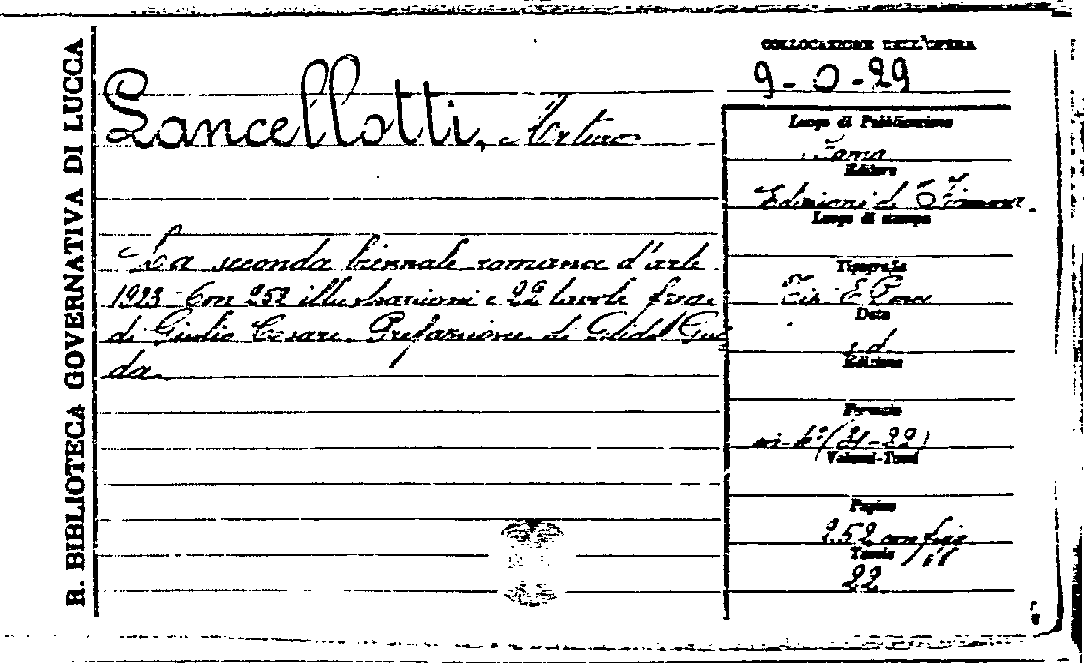 R. BIBLIOTECA GOVERNATIVA DI LUCCA
Lancellotti, Arturo
La seconda biennale romana d'arte
1923 - Con 252 illustrazioni e 22 tavole
di Giulio Cesare. Prefazione di
da.
COLLOCAZIONE DELL'OPERA
9-0-29
Luogo di Pubblicazione
Roma
Editore
Edizioni di
Luogo di stampa
Tipografia
Tip. E.
Data
s.d.
Edizione
Formato
in-4° (21-22)
Volumi-Tomi
Pagine
252 con figg
Tavole
22